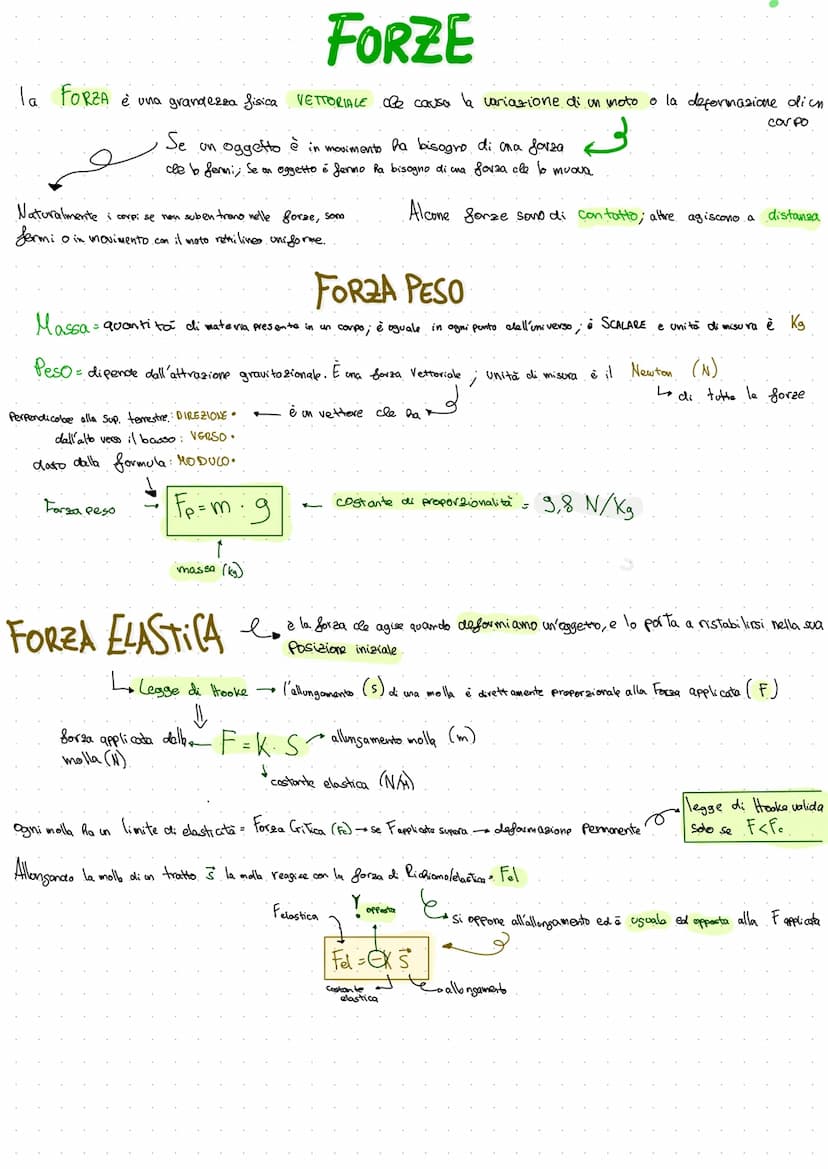 FORZE
la FORZA è una grandezza fisica VETTORIALE che causa la variazione di un moto o la deformazione di un
corpo
Se un oggetto è in movimento ha bisogno di una forza
che lo fermi; Se un oggetto è fermo ha bisogno di una forza che lo muova
Naturalmente i corpi se non subentrano nelle forze, sono
fermi o in movimento con il moto rettilineo uniforme.
Alcune forze sono di contatto; altre agiscono a distanza
FORZA PESO
Massa = quantità di materia presente in un corpo; è uguale in ogni punto dell'universo; è SCALARE e unità di misura è Kg
Peso = dipende dall'attrazione gravitazionale. È una forza Vettoriale; unità di misura è il Newton (N)
↳ di tutte le forze
è un vettore che ha
Perpendicolare alla Sup. terrestre: DIREZIONE •
dall'alto verso il basso: VERSO •
dato dalla formula: MODULO •
Forza peso → Fp = m · g ← costante di proporzionalità = 9,8 N/Kg
massa (kg)
FORZA ELASTICA
è la forza che agisce quando deformiamo un'oggetto, e lo porta a ristabilirsi nella sua
posizione iniziale
Legge di Hooke → l'allungamento (s) di una molla è direttamente proporzionale alla Forza applicata (F)
forza applicata dalla
molla (N)
F = K · S
allungamento molla (m)
costante elastica (N/M)
Ogni molla ha un limite di elasticità = Forza Critica (Fc) → se F applicata supera → deformazione Permanente
legge di Hooke valida
solo se F<Fc
Allungando la molla di un tratto s⃗ la molla reagisce con la forza di Richiamo/elastica = Fel
si oppone all'allungamento ed è uguale ed opposta alla F applicata
Felastica
! opposta
Fel = -K s⃗
costante
elastica
allungamento